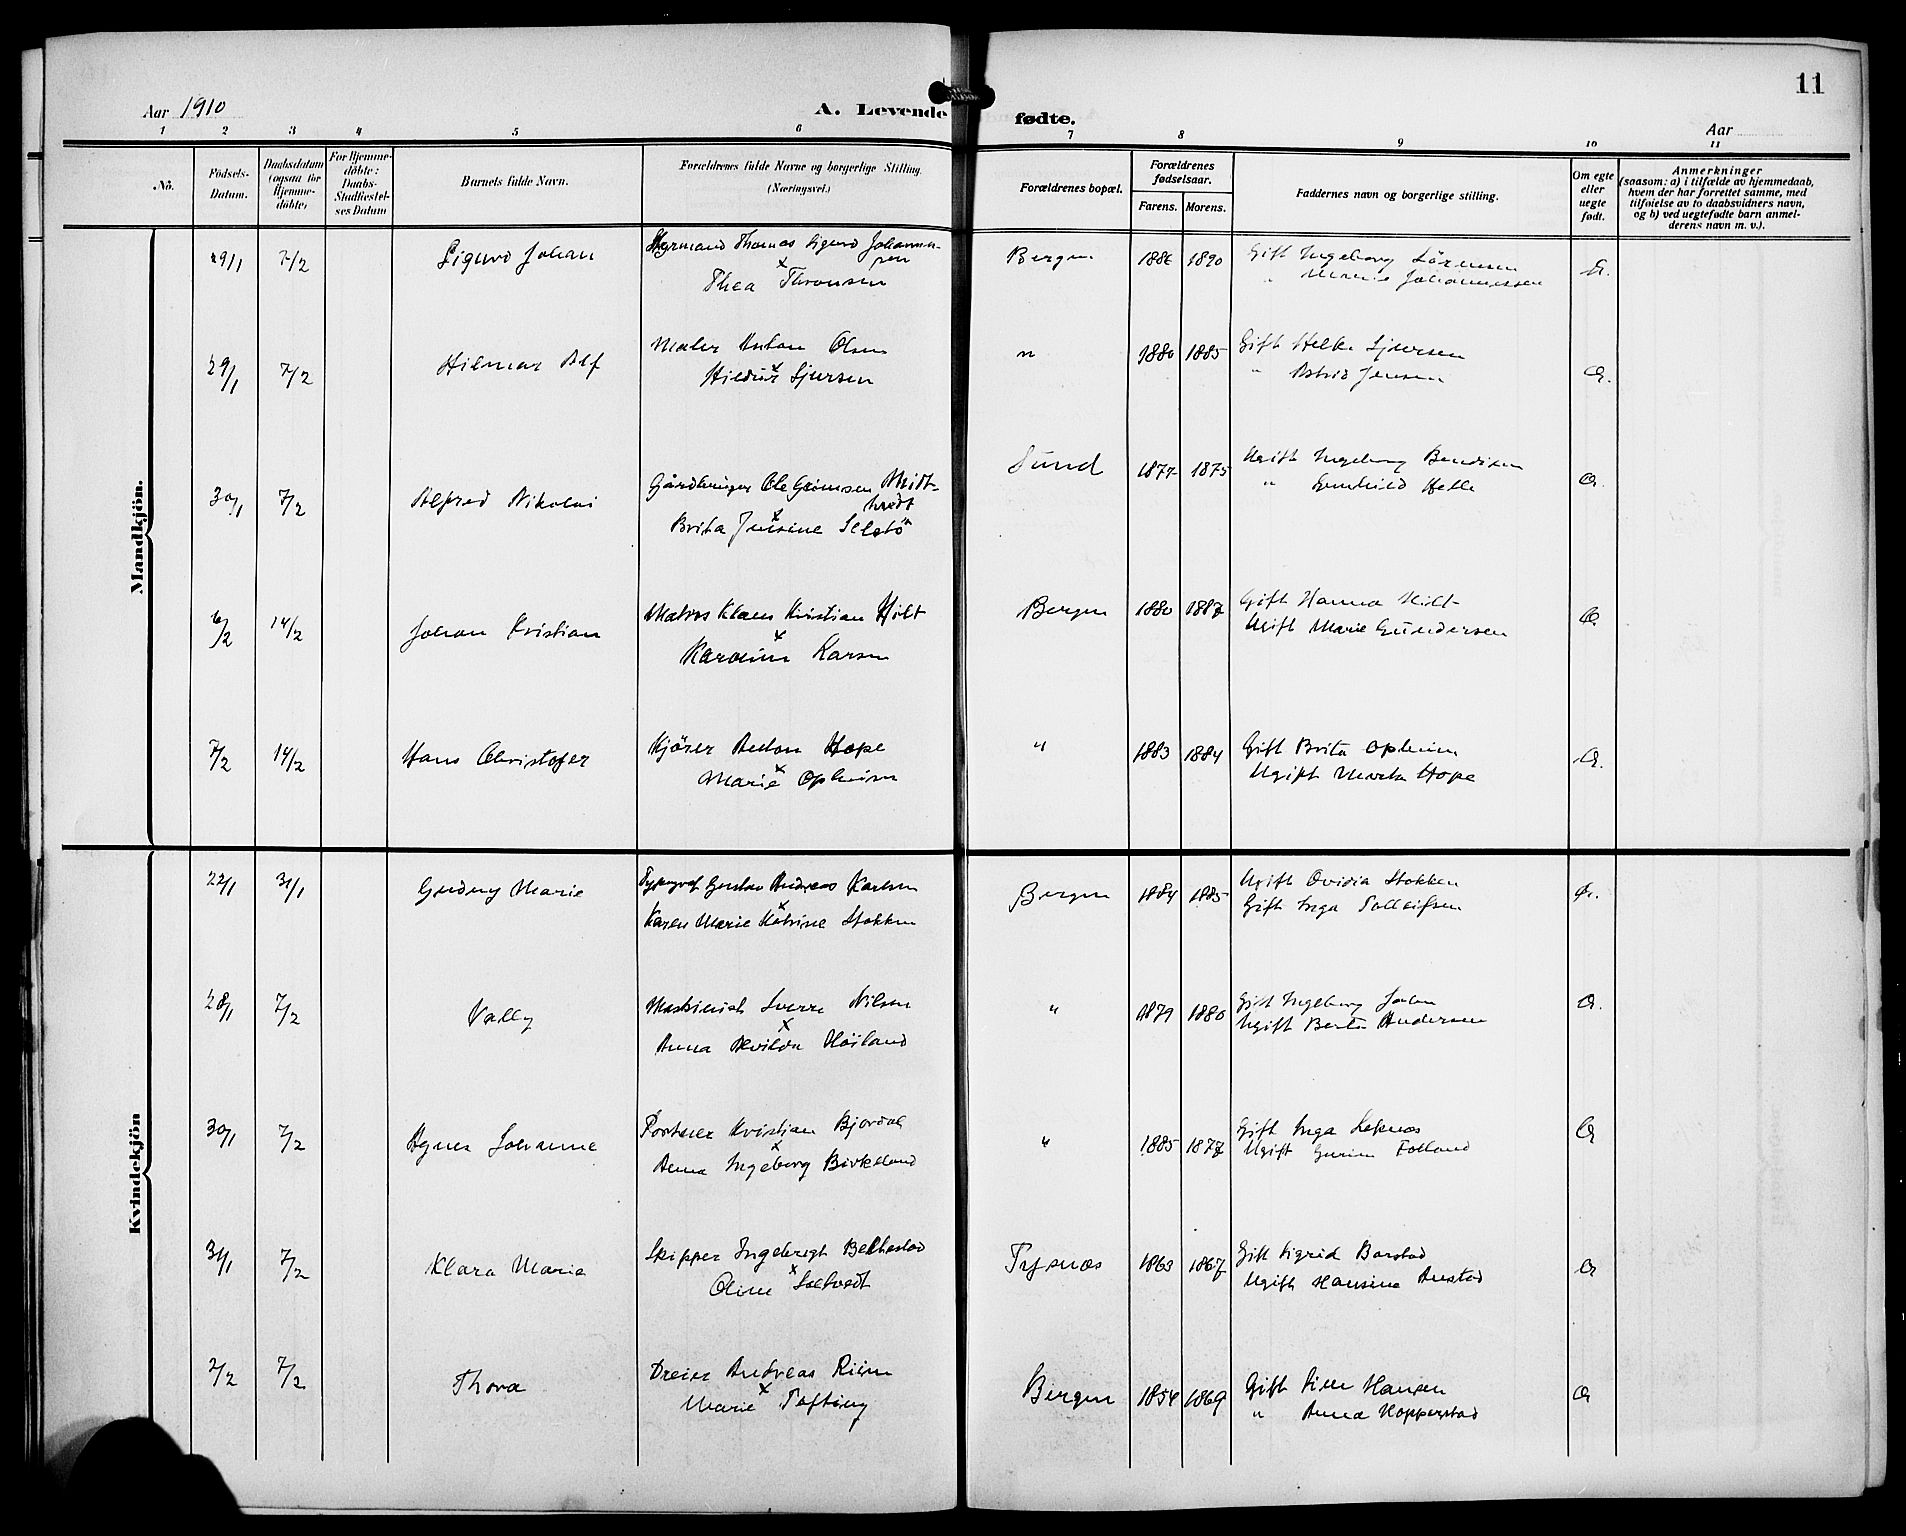 11
Aar 1910
A. Levende fødte.
Aar
1 2 3 4 5 6 7 8 9 10 11
No.
Fødsels-
Datum.
Daabsdatum
(ogsaa for
Hjemme-
døbte)
For Hjemme-
døbte:
Daabs-
Stadfæstel-
ses Datum
Barnets fulde Navn.
Forældrenes fulde Navne og borgerlige Stilling.
(Næringsvei.)
Forældrenes bopæl.
Forældrenes
fødselsaar.
Farens. Morens.
Faddernes navn og borgerlige stilling.
Om egte
eller
uegte
født.
Anmerkninger
(saasom: a) i tilfælde av hjemmedaab,
hvem der har forrettet samme, med
tilføielse av to daabsvidners navn,
og b) ved uegtefødte barn anmel-
derens navn m. v.).
Mandkjön.
29/1 7/2 Sigurd Johan
Styrmand Thomas Sigurd Johannes-
sen
x
Thea Thronsen
Bergen 1886 1890
Gift Ingeborg Sörensen
" Marie Johannessen
Æ.
29/1 7/2 Hilmar Alf
Maler Anton Olsen
x
Sjursen
" 1880 1885
Gift Helke Sjursen
" Astrid Jensen
Æ.
30/1 7/2 Alfred Nikolai
Gårdbruger Ole Midt-
tvedt
x
Brita Jensine Selstö
Sund 1877 1875
Ugift Ingeborg Bendixen
" Gunhild Helle
Æ.
6/2 14/2 Johan Kristian
Matros Klaus Kristian Hilt
x
Karoline Larsen
Bergen 1880 1887
Gift Hanna Hilt
Ugift Marie Gundersen
Æ.
7/2 14/2 Hans Christofer
Kjörer Anton Hope
x
Marie Opheim
" 1883 1884
Gift Brita Opheim
Ugift Marta Hope
Æ.
Kvindekjön
22/1 31/1 Gudny Marie
Typograf Gustav Andreas Karlsen
x
Karen Marie Katrine Stokken
Bergen 1884 1885
Ugift Ovidia Stokken
Gift Inga Solleifsen
Æ.
28/1 7/2 Vally
Maskinist Sverre Nilsen
x
Anna Alvilda Höiland
" 1879 1880
Gift Ingeborg
Ugift Berta Andersen
Æ.
30/1 7/2 Agnes Johanne
Portier Kristian Bjordal
x
Anna Ingeborg Birkeland
" 1885 1877
Gift Inga Leknes
Ugift Gurine Folland
Æ
31/1 7/2 Klara Marie
Skipper Ingebrigt Belthestad
x
Oline Sæltvedt
Tysnæs 1863 1867
Gift Sigrid Barstad
Ugift Hansine Anstad
Æ
2/2 7/2 Thora
Dreier Andreas Riise
x
Marie Tofting
Bergen 1854 1869
Gift Hansen
" Anna Hopperstad
Æ